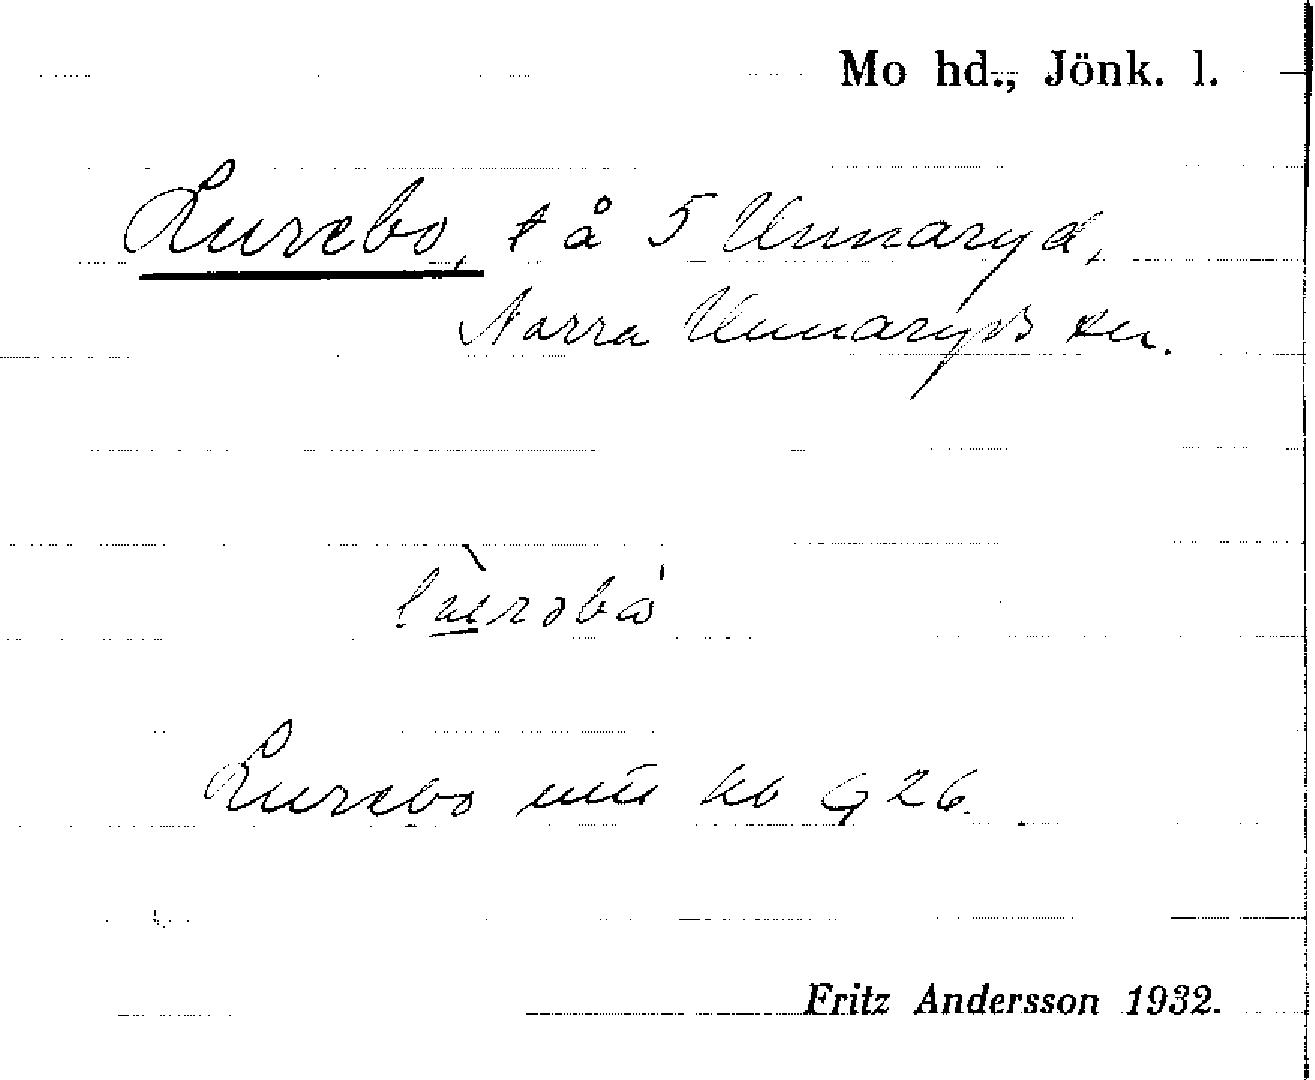 Mo hd., Jönk. l.
Lurebo, t å 5 Unnaryd,
Norra Unnaryds sn.
Lurebo uti kb G 26.
Fritz Andersson 1932.